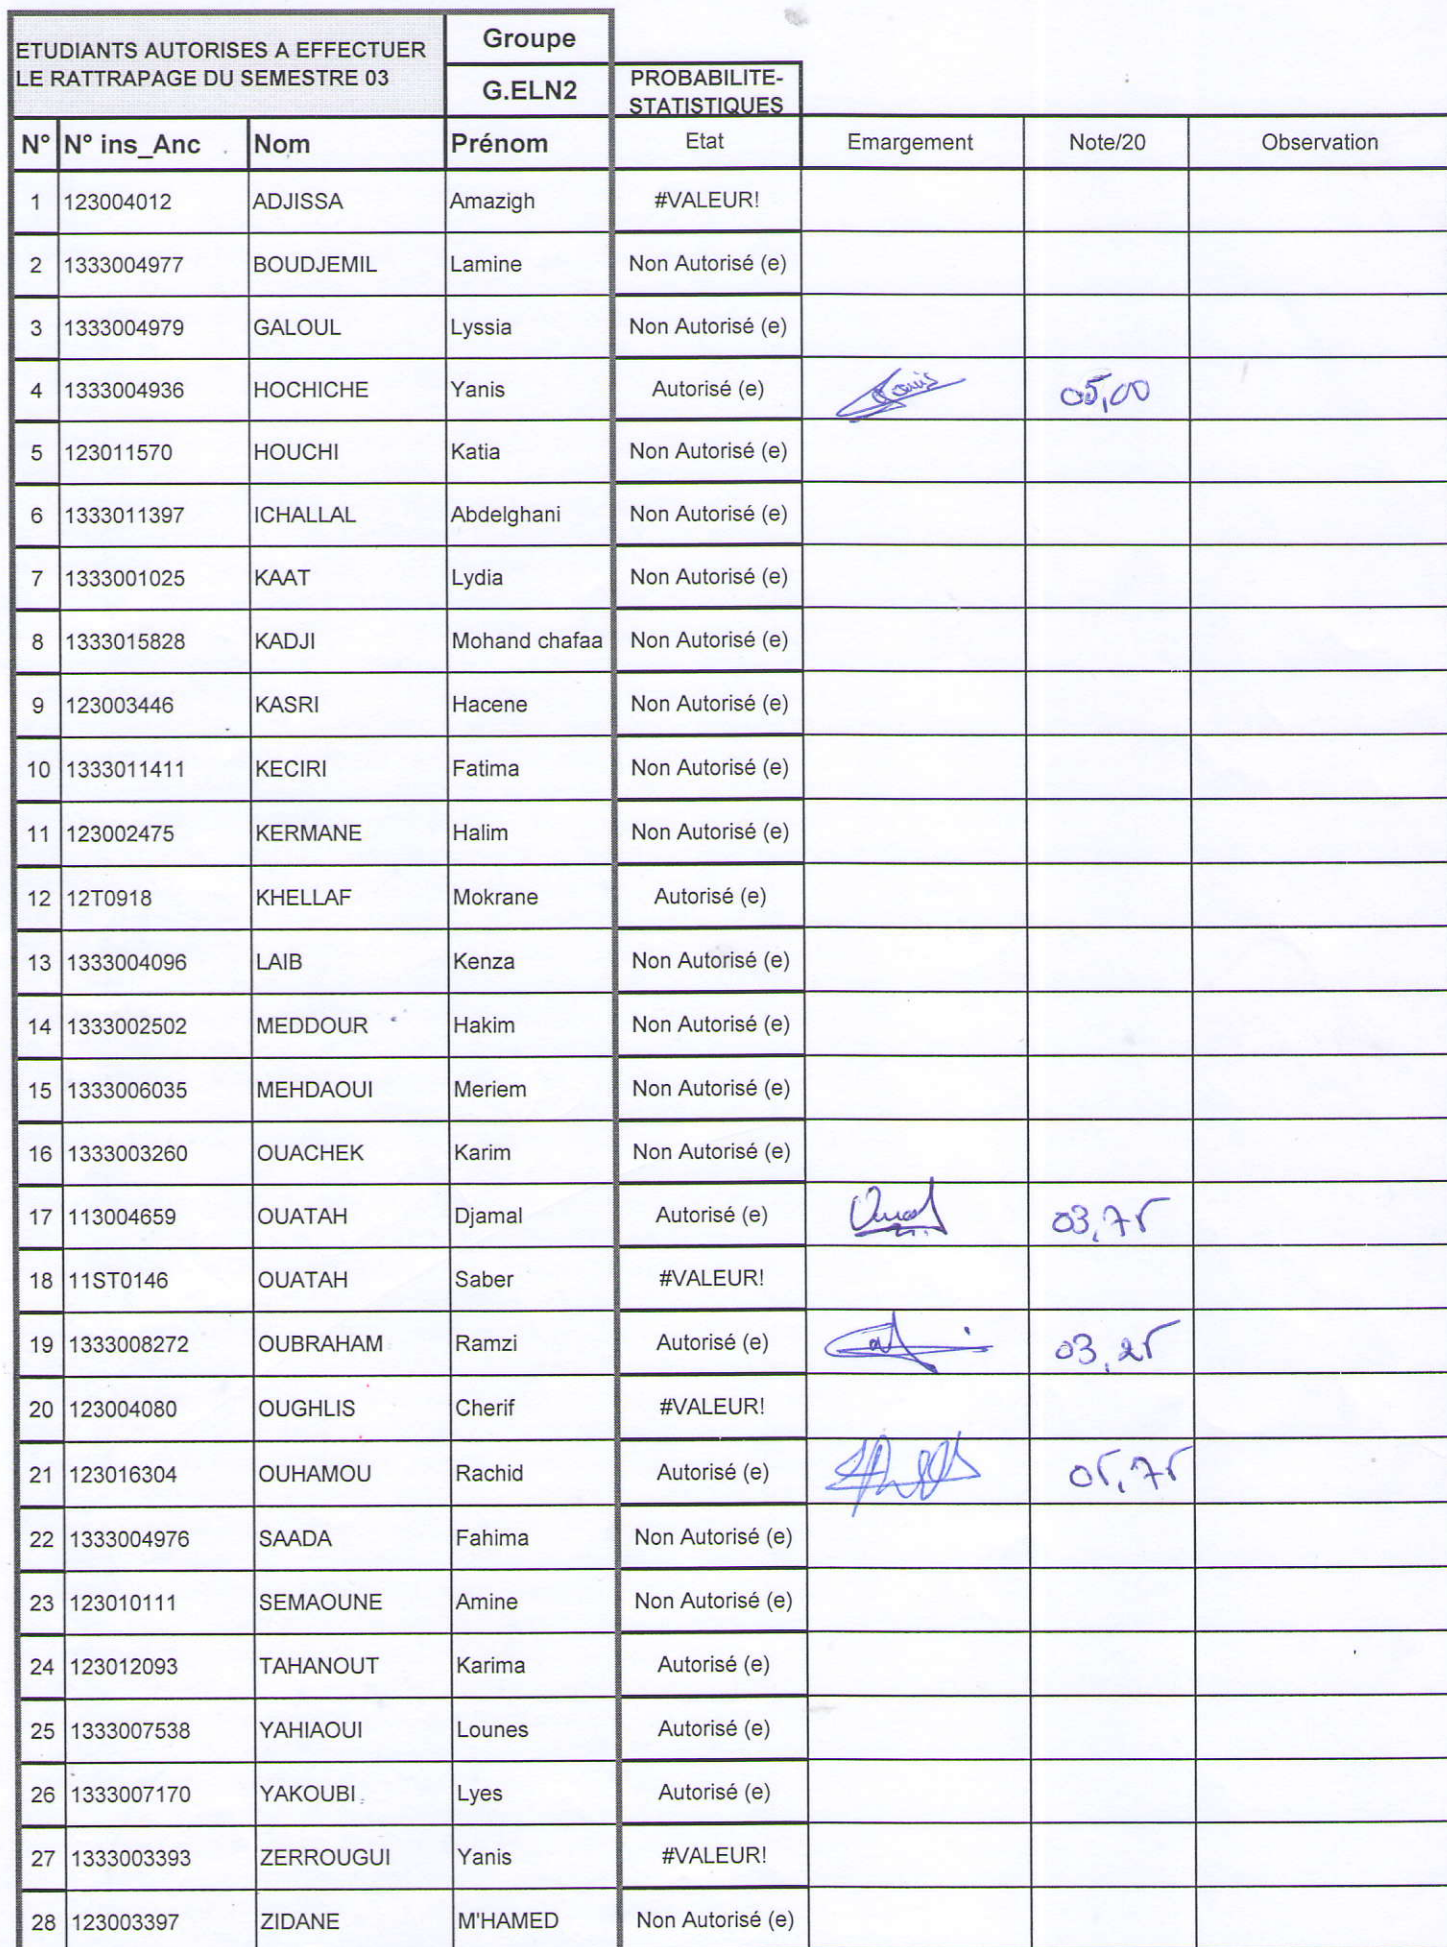 ETUDIANTS AUTORISES A EFFECTUER LE RATTRAPAGE DU SEMESTRE 03
Groupe
G.ELN2
PROBABILITE-STATISTIQUES
N° N° ins_Anc Nom Prénom Etat Emargement Note/20 Observation
1 123004012 ADJISSA Amazigh #VALEUR!
2 1333004977 BOUDJEMIL Lamine Non Autorisé (e)
3 1333004979 GALOUL Lyssia Non Autorisé (e)
4 1333004936 HOCHICHE Yanis Autorisé (e) 05,00
5 123011570 HOUCHI Katia Non Autorisé (e)
6 1333011397 ICHALLAL Abdelghani Non Autorisé (e)
7 1333001025 KAAT Lydia Non Autorisé (e)
8 1333015828 KADJI Mohand chafaa Non Autorisé (e)
9 123003446 KASRI Hacene Non Autorisé (e)
10 1333011411 KECIRI Fatima Non Autorisé (e)
11 123002475 KERMANE Halim Non Autorisé (e)
12 12T0918 KHELLAF Mokrane Autorisé (e)
13 1333004096 LAIB Kenza Non Autorisé (e)
14 1333002502 MEDDOUR Hakim Non Autorisé (e)
15 1333006035 MEHDAOUI Meriem Non Autorisé (e)
16 1333003260 OUACHEK Karim Non Autorisé (e)
17 113004659 OUATAH Djamal Autorisé (e) 03,75
18 11ST0146 OUATAH Saber #VALEUR!
19 1333008272 OUBRAHAM Ramzi Autorisé (e) 03,25
20 123004080 OUGHLIS Cherif #VALEUR!
21 123016304 OUHAMOU Rachid Autorisé (e) 05,75
22 1333004976 SAADA Fahima Non Autorisé (e)
23 123010111 SEMAOUNE Amine Non Autorisé (e)
24 123012093 TAHANOUT Karima Autorisé (e)
25 1333007538 YAHIAOUI Lounes Autorisé (e)
26 1333007170 YAKOUBI Lyes Autorisé (e)
27 1333003393 ZERROUGUI Yanis #VALEUR!
28 123003397 ZIDANE M'HAMED Non Autorisé (e)